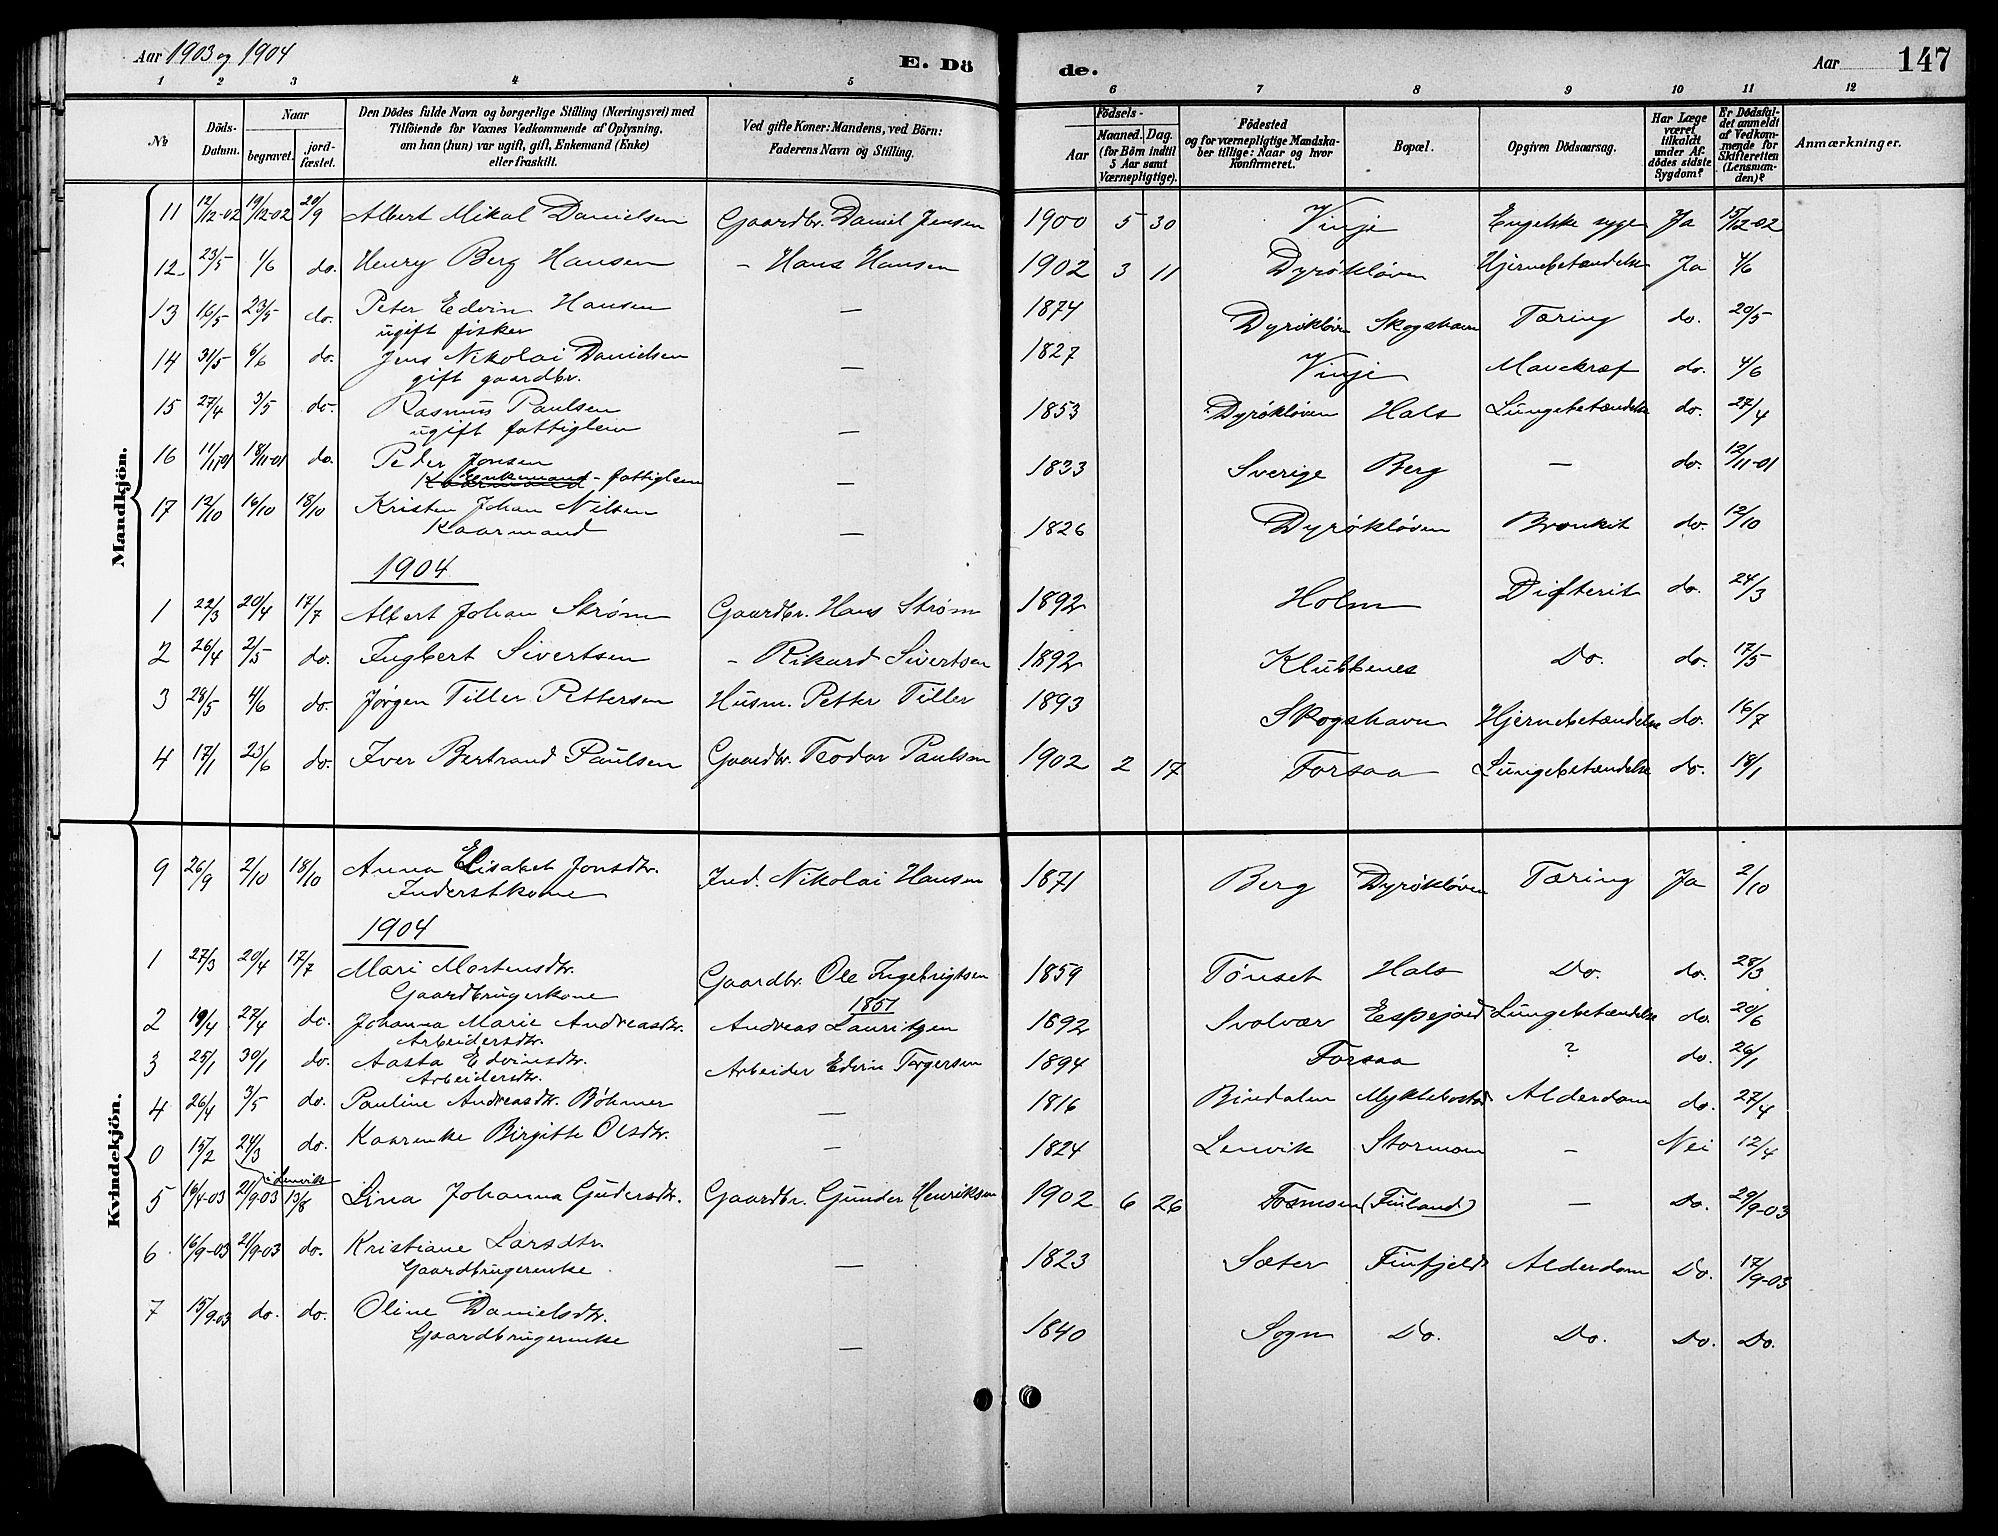 Aar 1903 og 1904 E. Dö de. Aar 147
1 2 3 4 5 6 7 8 9 10 11 12
No Döds-Datum. Naar begravet. jord-fæstet. Den Dödes fulde Navn og borgerlige Stilling (Næringsvei) med Tilföiende for Voxnes Vedkommende af Oplysning, om han (hun) var ugift, gift, Enkemand (Enke) eller fraskilt. Ved gifte Koner: Mandens, ved Börn: Faderens Navn og Stilling. Födsels- Aar Maaned. Dag. (for Börn indtil 5 Aar samt Værnepligtige). Födested og for værnepligtige Mandska-ber tillige: Naar og hvor konfirmeret. Bopæl. Opgiven Dödsaarsag. Har Læge været tilkaldt under Af-dödes sidste Sygdom? Er Dödsfal-det anmeldt af Vedkom-mende for Skifteretten (Lensman-den)? Anmærkninger.
Mandkjön.
11 12/12-02 19/12-02 20/9 Albert Mikal Danielsen Gaardbr. Daniel Jensen 1900 5 30 Vinje Engelske syge Ja 15/12-02
12 23/5 1/6 do. Henry Berg Hansen - Hans Hansen 1902 3 11 Dyrøkløven Hjernebetændelse Ja 4/6
13 16/5 23/5 do. Peter Edvin Hansen — 1874 Dyrøkløv Skogshavn Tæring do. 20/5
ugift fisker
14 31/5 6/6 do. Jens Nikolai Danielsen — 1827 Vinje Mavekræf do. 4/6
gift gaardbr.
15 27/4 3/5 do. Rasmus Paulsen — 1853 Dyrøkløven Hals Lungebetændelse do. 27/4
ugift fattiglem
16 11/11-01 18/11-01 do. Peder Jonsen — 1833 Sverige Berg — do. 12/11-01
Kaarmand Enkemand - fattiglem
17 12/10 16/10 18/10 Kristen Johan Nilsen — 1826 Dyrøkløven Bronkit do. 12/10
Kaarmand
1904
1 22/3 20/4 17/7 Albert Johan Strøm Gaardbr. Hans Strøm 1892 Holm Difterit do. 24/3
2 26/4 2/5 do. Ingbert Sivertsen - Rikard Sivertsen 1892 Klubbenes Do. do. 17/5
3 29/5 4/6 do. Jørgen Tiller Pettersen Husm. Petter Tiller 1893 Skogshavn Hjernebetændelse do. 16/7
4 17/1 23/6 do. Iver Bertrand Paulsen Gaardbr. Teodor Paulsen 1902 2 17 Forsaa Lungebetændelse do. 18/1
Kvindekjön.
9 26/9 2/10 18/10 Anna Elisabet Jonsdtr. Ind. Nikolai Hansen 1871 Berg Dyrøkløven Tæring Ja 2/10
Inderstkone
1904
1 27/3 20/4 17/7 Mari Mortensdtr. Gaardbr. Ole Ingebrigtsen 1859 Tønset Hals Do. do. 28/3
Gaardbrugerkone 1851
2 19/4 27/4 do. Johanna Marie Andreasdtr. Andreas Lauritzen 1892 Svolvær Espejord Lungebetændelse do. 20/6
Arbeidersdtr.
3 25/1 30/1 do. Aasta Edvinsdtr. Arbeider Edvin Torgersen 1894 Forsaa ? do. 26/1
Arbeidersdtr.
4 26/4 3/5 do. Pauline Andreasdtr. Bøhmer — 1816 Bindalen Myklebostad Alderdom do. 27/4
0 15/2 24/3 do. Kaarenke Birgitte Olsdtr. — 1824 Lenvik Stormoen — Nei 12/4
i Lenvik
5 16/4-03 21/9-03 13/8 Lina Johanna Gudersdtr. Gaardbr. Gunder Henriksen 1902 6 26 Tømsen (Finland) — Do. 29/9-03
6 16/9-03 21/9-03 do. Kristiane Larsdtr. — 1823 Sæter Finfjeld Alderdom Do. 17/9-03
Gaardbrugerenke
7 15/9-03 do. do. Oline Danielsdtr. — 1840 Sogn Do. Do. Do. Do.
Gaardbrugerenke